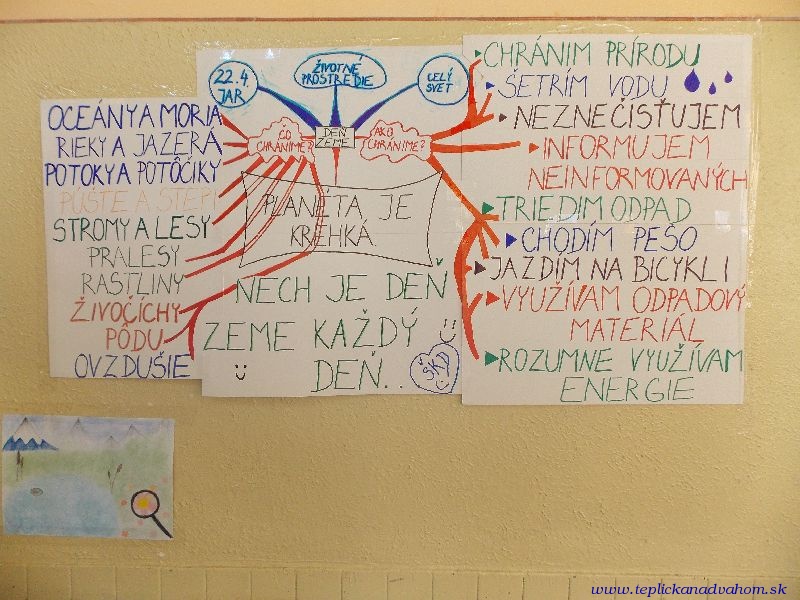 22.4.
JAR
ŽIVOTNÉ
PROSTREDIE
CELÝ
SVET
DEŇ
ZEME
ČO
CHRÁNIME?
AKO
CHRÁNIME?
OCEÁNY A MORIA
RIEKY A JAZERÁ
POTOKY A POTÔČIKY
PÚŠTE A STEPI
STROMY A LESY
PRALESY
RASTLINY
ŽIVOČÍCHY
PÔDU
OVZDUŠIE
PLANÉTA JE
KREHKÁ.
NECH JE DEŇ
ZEME KAŽDÝ
DEŇ..
ŠKD
CHRÁNIM PRÍRODU
ŠETRÍM VODU
NEZNEČÍSŤUJEM
INFORMUJEM
NEINFORMOVANÝCH
TRIEDIM ODPAD
CHODÍM PEŠO
JAZDÍM NA BICYKLI
VYUŽÍVAM ODPADOVÝ
MATERIÁL
ROZUMNE VYUŽÍVAM
ENERGIE
www.teplickanadvahom.sk